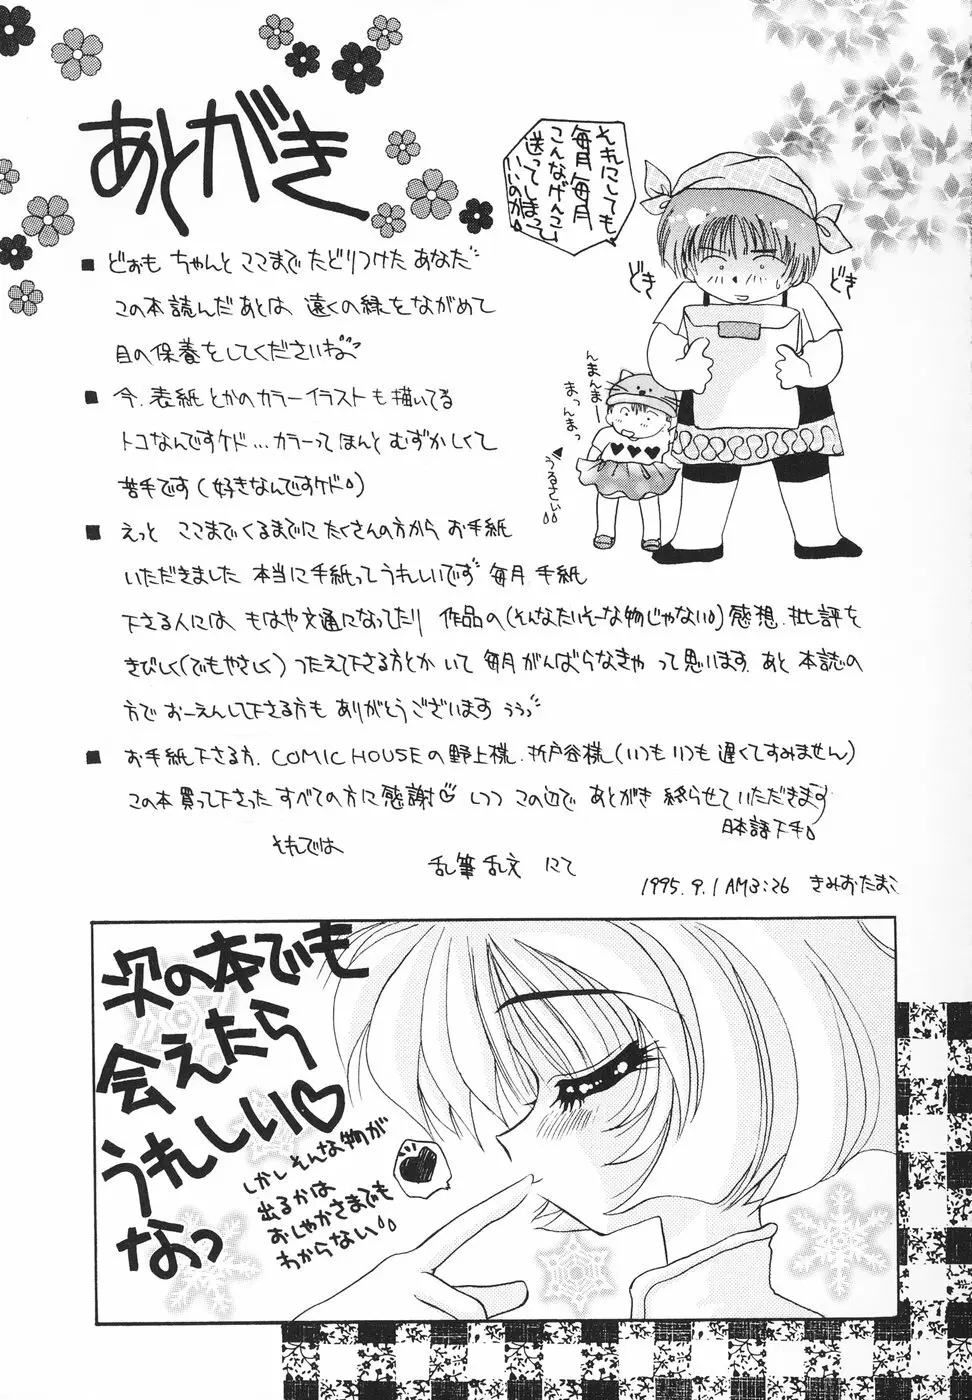 あとがき
それにしても
毎月毎月
こんなゲンコ
送ってしまって
いいのか
どき
どき
んまんまー
まっんまっ
うるさい
■ どぉも ちゃんと ここまで たどりつけた あなた
この本読んだあとは 遠くの緑をながめて
目の保養をしてくださいね
■ 今、表紙とかのカラーイラストも描いてる
トコなんですケド…カラーって ほんと むずかしくて
苦手です(好きなんですケド)
■ えっと ここまでくるまでに たくさんの方から お手紙
いただきました 本当に手紙って うれしいです 毎月 手紙
下さる人には、もはや文通になってたり 作品の(そんなたいそーな物じゃない)感想、批評を
きびしく(でもやさしく) つたえて下さる方とか いて 毎月がんばらなきゃ って思います。あと 本誌の
方で おーえんして下さる方も ありがとうございます うぅっ
■ お手紙下さる方、COMIC HOUSEの野上様、折戸谷様(いつもいつも遅くてすみません)
この本買って下さった すべての方に感謝♡しつつ この辺で あとがき 終らせていただきます
日本語下手
それでは
乱筆乱文 にて
1995.9.1 AM3:26 きみおたまこ
次の本でも
会えたら
うれしい♡
なっ
しかしそんな物が
出るかは
おしゃかさまでも
わからない